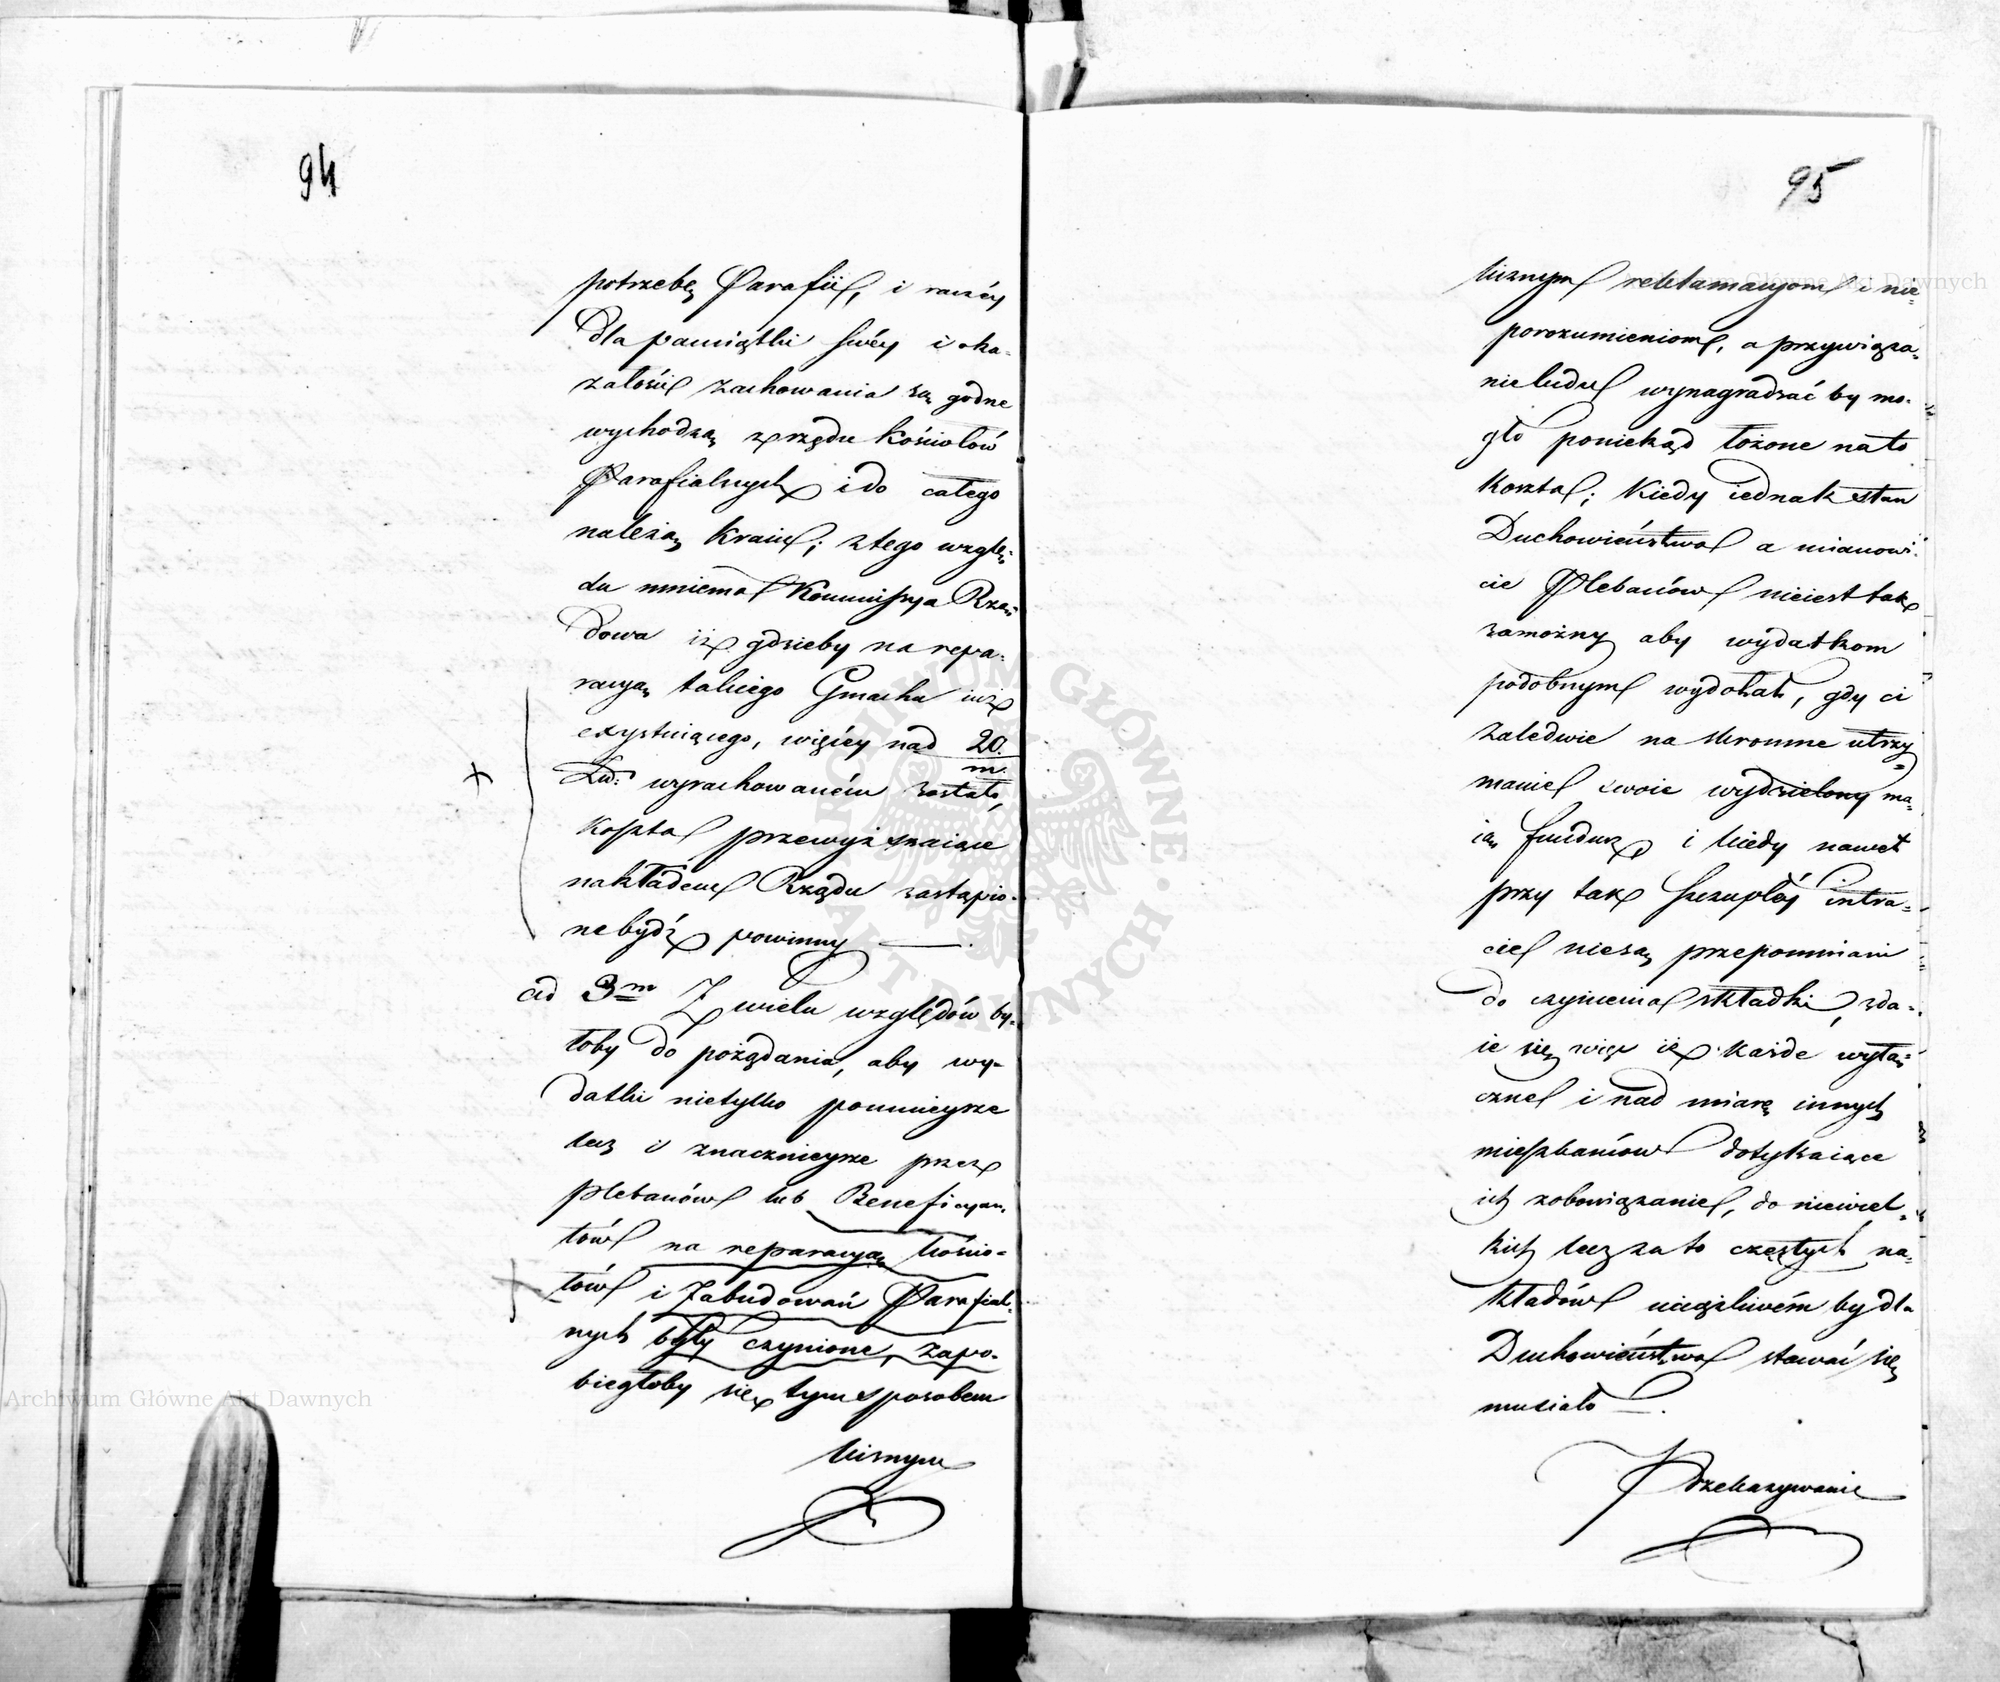 94
potrzebę Parafii, i raczéy
dla pamiątki swéy i oka-
załości zachowania są godne
wychodzą z rzędu kościołów
Parafialnych i do całego
należą kraiu; z tego wzglę-
du mniema Kommissya Rzą-
dowa iż gdzieby na repa-
racyą takiego Gmachu iuż
exystuiącego, więcéy nad 20
m.
Złt: wyrachowaném zostało,
koszta przewyższaiące
nakładem Rządu zastąpio-
ne bydź powinny —.
ad 3m Z wielu względów by-
łoby do pożądania, aby wy-
datki nietylko pomnieysze
lecz i znacznieysze przez
plebanów lub Beneficyan-
tów na reparacyą kościo-
łów i Zabudowań Parafial-
nych były czynione, zapo-
biegłoby się tym sposobem
licznym
95
licznym reklamacyom i nie-
porozumieniom, a przywiąza-
nie ludu wynagradzać by mo-
gło poniekąd łożone na to
koszta; kiedy iednak stan
Duchowieństwa a mianowi-
cie Plebanów nie iest tak
zamożny aby wydatkom
podobnym wydołał, gdy ci
zaledwie na skromne utrzy-
manie swoie wydzielony ma-
ią fundusz i kiedy nawet
przy tak szczupłéj intra-
cie nie są przepomniani
do czynienia składki, zda-
ie się więc iż każde wyłą-
czne i nad miarę innych
mieszkańców dotykaiące
ich zobowiązanie, do niewiel-
kich lecz za to częstych na-
kładów uciążliwém by dla
Duchowieństwa stawać się
musiało —.
Przekazywanie
Archiwum Główne Akt Dawnych
Archiwum Główne Akt Dawnych
ARCHIWUM GŁÓWNE AKT DAWNYCH